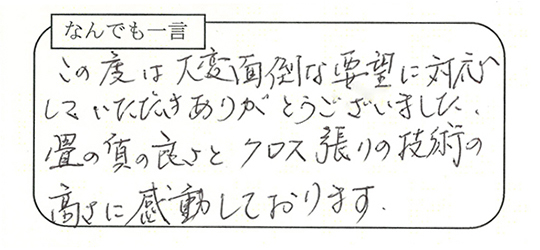 なんでも一言
この度は大変面倒な要望に対応
していただきありがとうございました、
畳の質の良さと クロス張りの技術の
高さに感動しております.